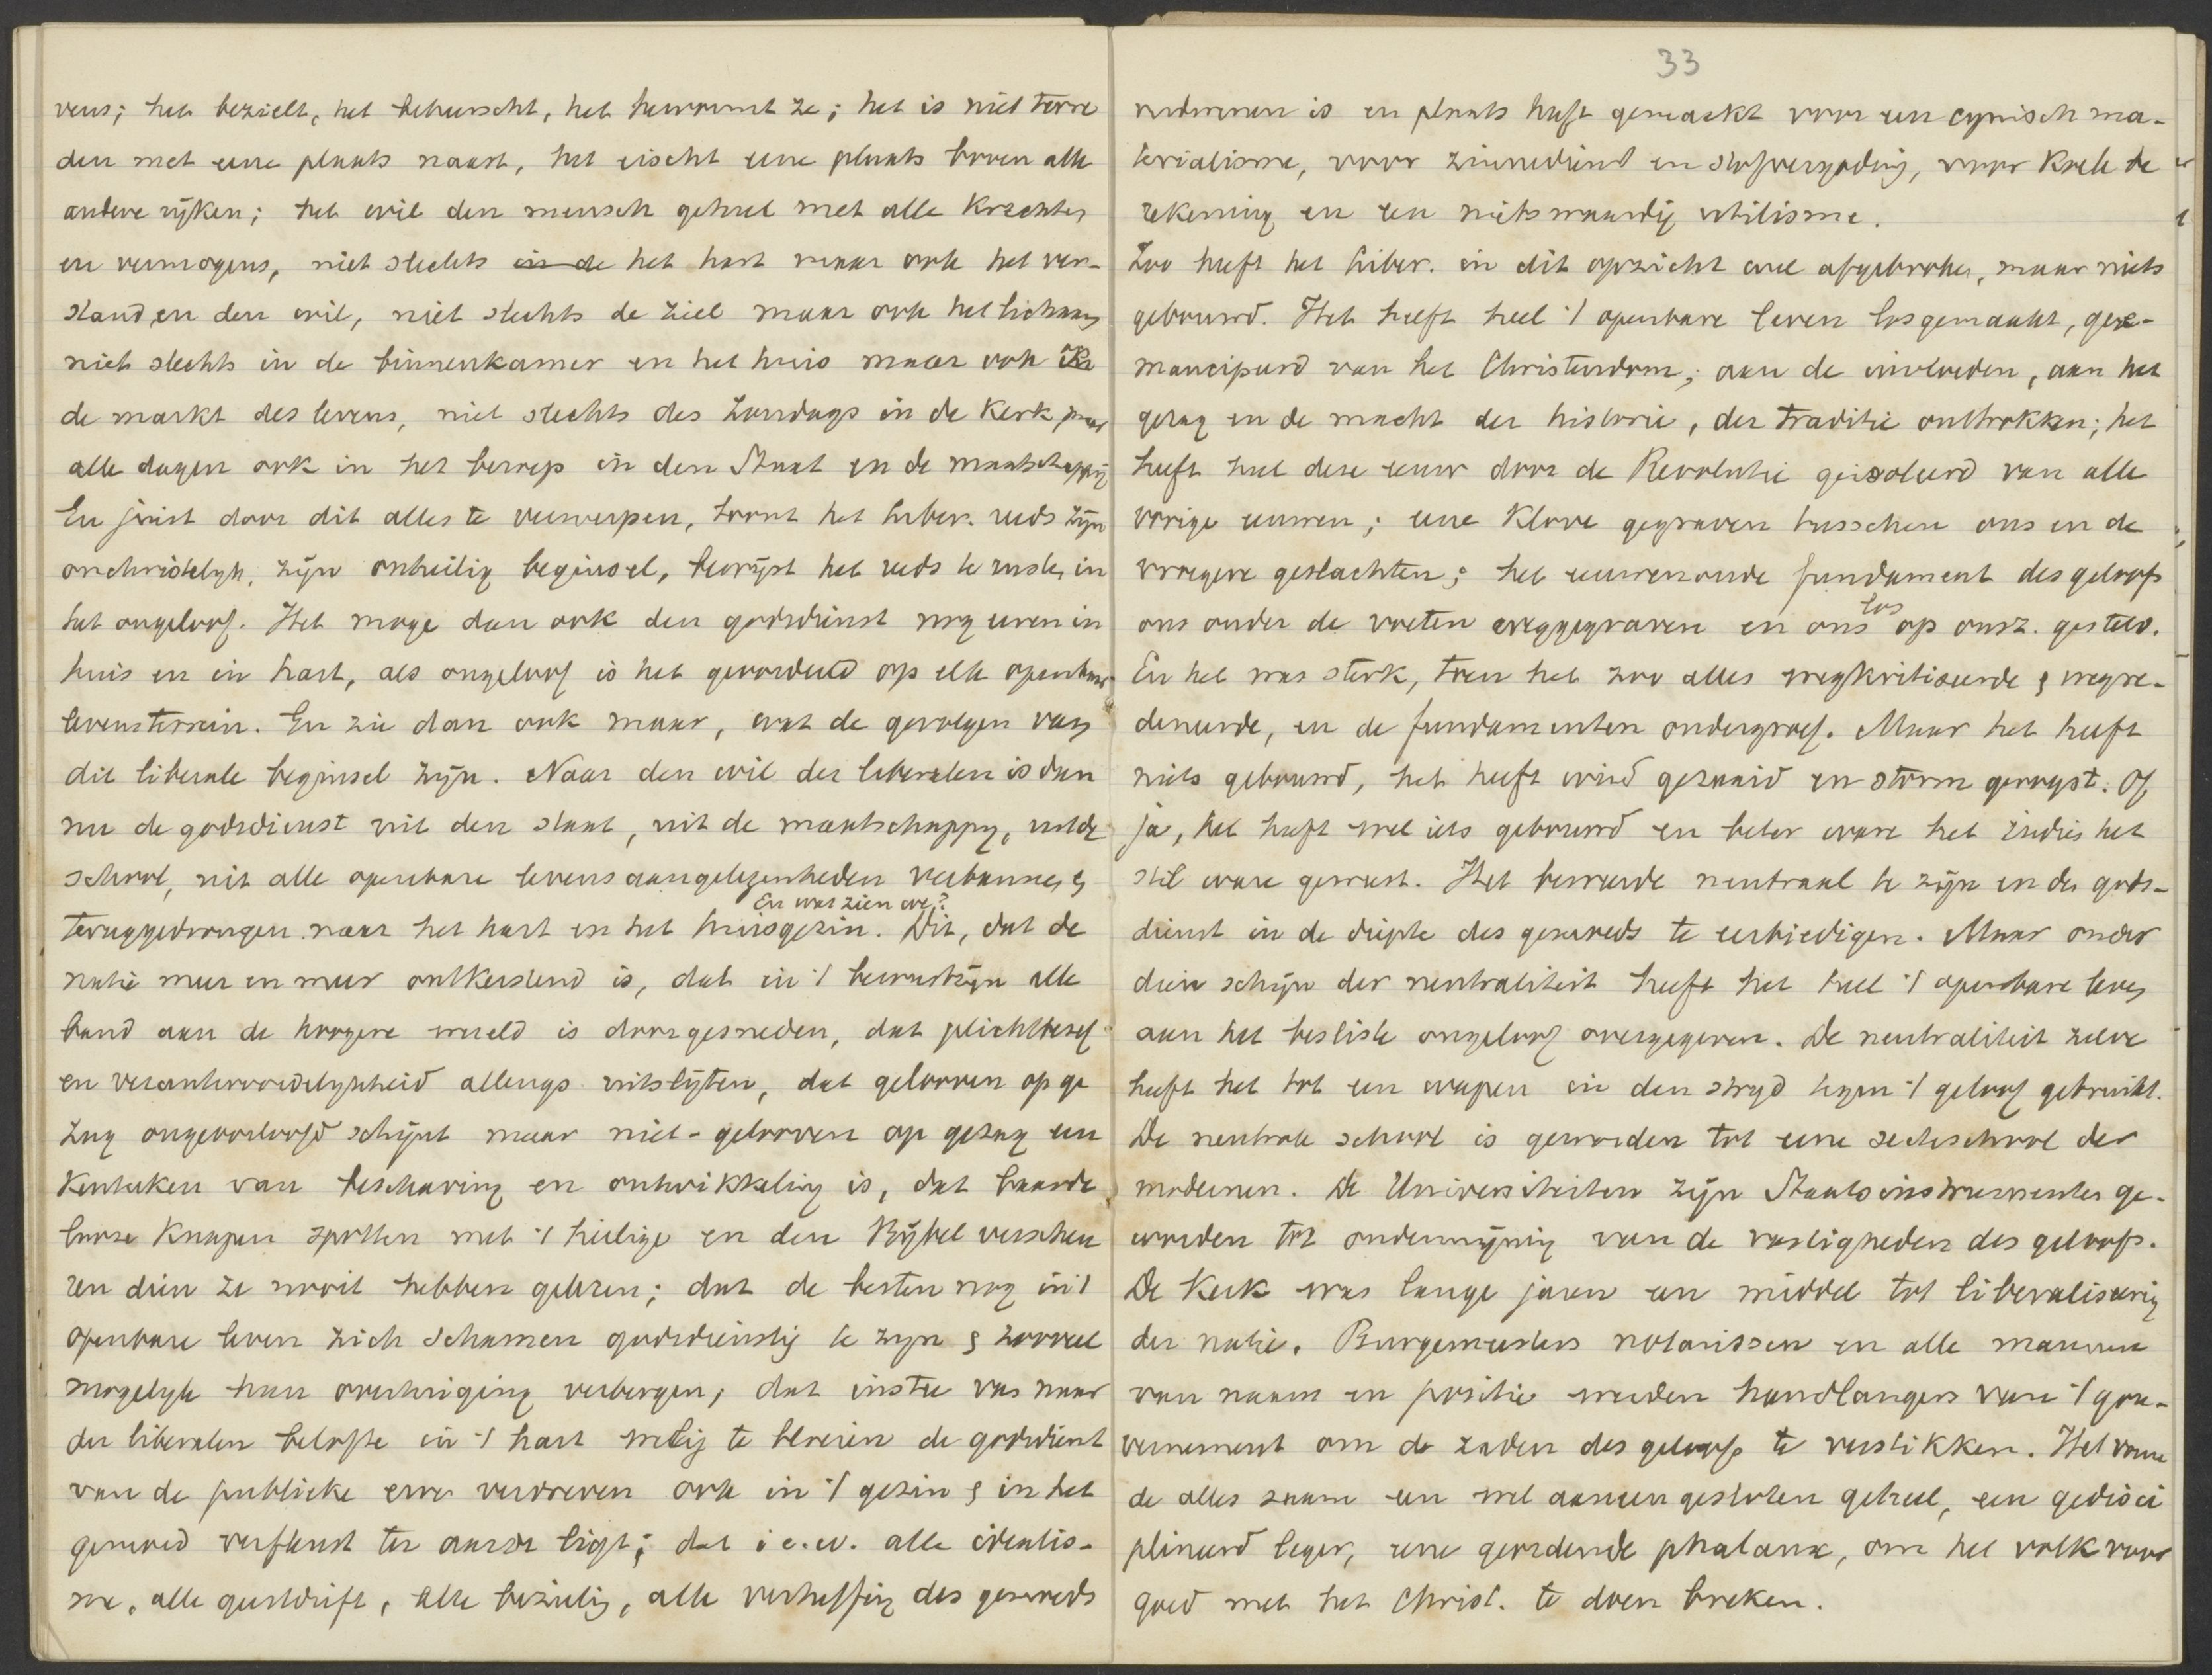 vens; het bezielt, het beheerscht, het hervormt ze; het is niet tevre
den met eene plaats naast, het eischt eene plaats boven alle
andere rijken; het wil den mensch geheel met alle krachten
en vermogens, niet slechts in de het hart maar ook het ver-
stand en den wil, niet slechts de ziel maar ook het lichaam
niet slechts in de binnenkamer en het huis maar ook
de markt des levens, niet slechts des Zondags in de Kerk maar
alle dagen ook in het beroep in den Staat en de maatschappij
En juist door dit alles te verwerpen, toont het liber. reeds zijn
onchristelijk, zijn onheilig beginsel, bewijst het reeds te rusten in
het ongeloof. Het moge dan ook den godsdienst nog eeren in
huis en in hart, als ongeloof is het geoordeeld op elk openbaar
levensterrein. En zie dan ook maar, wat de gevolgen van
dit liberale beginsel zijn. Naar den wil der liberalen is dan
nu de godsdienst uit den staat, uit de maatschappij, uit de
school, uit alle openbare levensaangelegenheden verbannen &
En wat zien we?
teruggedrongen naar het hart en het huisgezin. Dit, dat de
natie meer en meer ontkerstend is, dat in 't bewustzijn alle
band aan de hoogere wereld is doorgesneden, dat plichtbesef
en verantwoordelijkheid allengs uitslijten, dat gelooven op ge
zag ongeoorloofd schijnt maar niet-gelooven op gezag een
Kenteeken van beschaving en ontwikkeling is, dat baarde
looze Knapen spotten met 't heilige en den Bijbel verscheu
ren dien ze nooit hebben gelezen; dat de besten nog in 't
openbare leven zich schamen godsdienstig te zijn & zooveel
mogelijk hun overtuiging verbergen; dat instee van naar
der liberalen belofte in 't hart welig te bloeien de godsdienst
van de publieke erve verdreven ook in 't gezin & in het
gemoed verflenst ter aarde ligt; dat i e. w. alle idealis-
me, alle geestdrift, alle bezieling, alle verheffing des gemoeds
33
verdwenen is en plaats heeft gemaakt voor een cynisch ma-
terialisme, voor zinnedienst en stofvergoding, voor Koele be
rekening en een nietswaardig utilisme.
Zoo heeft het liber. in dit opzicht wel afgebroken, maar niets
gebouwd. Het heeft heel 't openbare leven losgemaakt, geë-
mancipeerd van het Christendom; aan de invloeden, aan het
gezag en de macht der historie, der traditie onttrokken; het
heeft heel deze eeuw door de Revolutie geïsoleerd van alle
vorige eeuwen; eene Kloove gegraven tusschen ons en de
vroegere geslachten; het eeuwenoude fundament des geloofs
los
ons onder de voeten weggegraven en ons op onsz. gesteld.
En het was sterk, toen het zoo alles wegkritiseerde & wegre-
deneerde, en de fundamenten ondergroef. Maar het heeft
niets gebouwd, het heeft wind gezaaid en storm geoogst. Of
ja, het heeft wel iets gebouwd en beter ware het indien het
stil ware geweest. Het beweerde neutraal te zijn en de gods-
dienst in de diepte des gemoeds te eerbiedigen. Maar onder
dien schijn der neutraliteit heeft het heel 't openbare leven
aan het besliste ongeloof overgegeven. De neutraliteit zelve
heeft het tot een wapen in den strijd tegen 't geloof gebruikt.
De neutrale school is geworden tot eene secteschool der
modernen. De Universiteiten zijn Staatsinstrumenten ge-
worden tot ondermijning van de vastigheden des geloofs.
De Kerk was lange jaren een middel tot liberaliseering
der natie. Burgemeesters notarissen en alle mannen
van naam en positie werden handlangers van 't gou-
vernement om de zaden des geloofs te verstikken. Het vorm
de alles saam een wel aaneengesloten geheel, een gedisci
plineerd leger, eene geordende phalanx, om het volk voor
goed met het Christ. te doen breken.